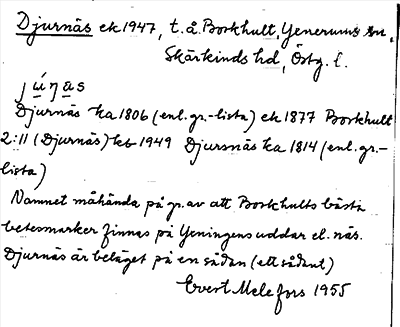 Djurnäs ek 1947, t. å. Borkhult, Yenerums sn,
Skärkinds hd, Östg. l.
júṇas
Djurnäs ka 1806 (enl. gr.-lista) ek 1877 Borkhult
2:11 (Djurnäs) kb 1949 Djursnäs ka 1814 (enl. gr.-
lista)
Namnet måhända på gr. av att Borkhults bästa
betesmarker finnas på Yeningens uddar el. näs.
Djurnäs är beläget på en sådan (ett sådant)
Evert Melefors 1955